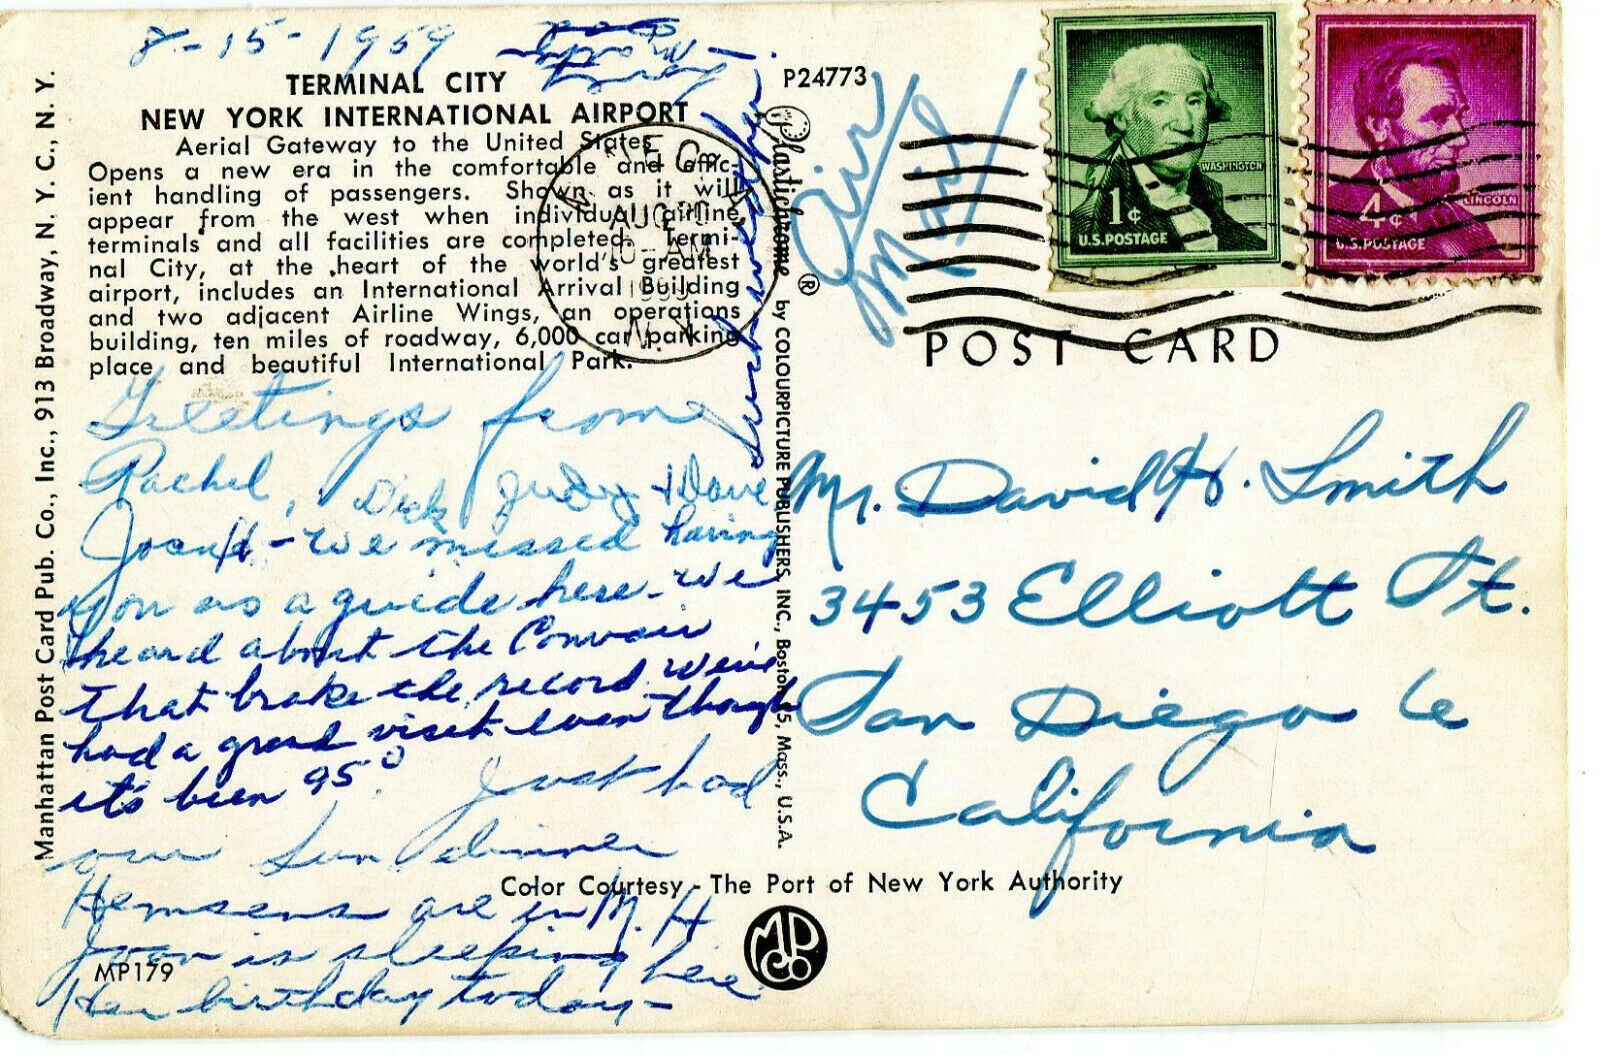 8-15-1959
TERMINAL CITY
NEW YORK INTERNATIONAL AIRPORT
Aerial Gateway to the United States
Opens a new era in the comfortable and effic-
ient handling of passengers. Shown as it will
appear from the west when individual airline
terminals and all facilities are completed. Termi-
nal City, at the heart of the world's greatest
airport, includes an International Arrival Building
and two adjacent Airline Wings, an operations
building, ten miles of roadway, 6,000 car parking
place and beautiful International Park.
Greetings from
Rachel, Dick Judy & Dave
- we missed having
you as a guide here - we
heard about the Convair
that broke the record. We've
had a grand visit even though
it's been 95°. Just had
our Sun dinner
Hemsens are in M. H
Joan is sleeping here
Her birthday today -
such weather
MP179
Manhattan Post Card Pub. Co., Inc., 913 Broadway, N. Y. C., N. Y.
P24773
Plastichrome ® by COLOURPICTURE PUBLISHERS, INC., Boston 15, Mass., U.S.A.
AUG
AM
1959
N. Y.
Air
Mail
1¢
WASHINGTON
U.S. POSTAGE
4¢
LINCOLN
U.S. POSTAGE
POST CARD
Mr. David H. Smith
3453 Elliott St.
San Diego 6
California
Color Courtesy - The Port of New York Authority
MPCo